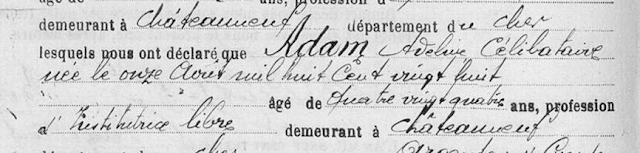 demeurant à Châteauneuf département du Cher
lesquels nous ont déclaré que Adam Adeline Célibataire
née le onze Août mil huit Cent vingt huit
âgé de quatre vingt quatre ans, profession
d'Institutrice libre demeurant à Châteauneuf